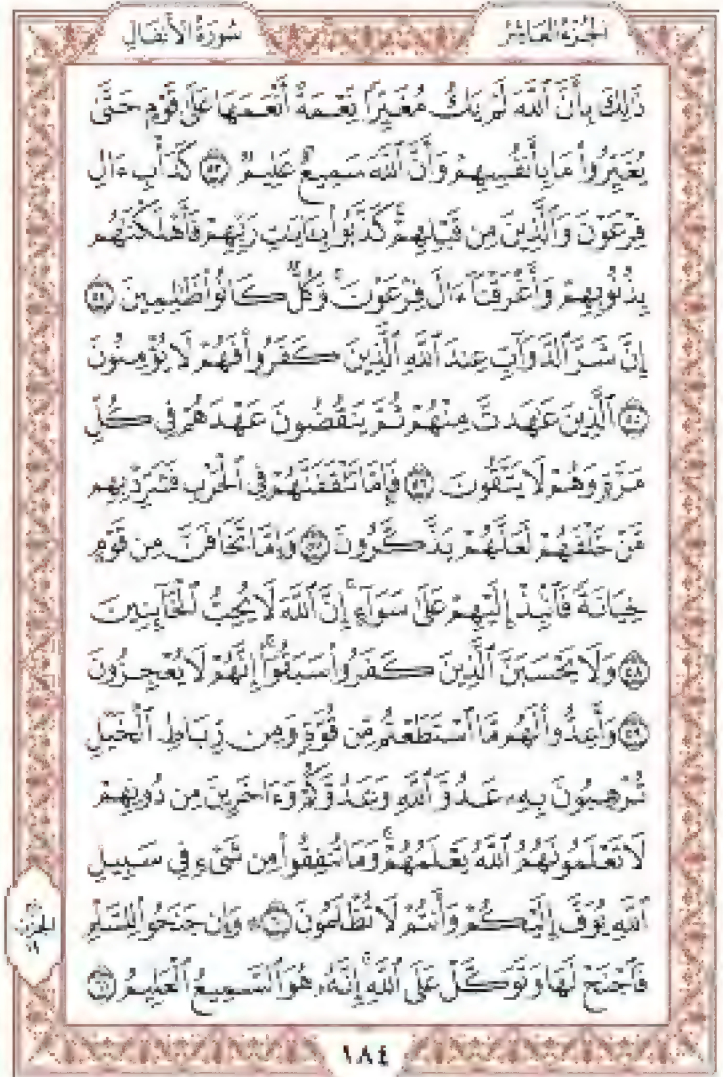 الجزء العاشر
سورة الأنفال
ذَٰلِكَ بِأَنَّ ٱللَّهَ لَمْ يَكُ مُغَيِّرًا نِّعْمَةً أَنْعَمَهَا عَلَىٰ قَوْمٍ حَتَّىٰ
يُغَيِّرُوا۟ مَا بِأَنفُسِهِمْ وَأَنَّ ٱللَّهَ سَمِيعٌ عَلِيمٌ ٥٣ كَدَأْبِ ءَالِ
فِرْعَوْنَ وَٱلَّذِينَ مِن قَبْلِهِمْ كَذَّبُوا۟ بِـَٔايَـٰتِ رَبِّهِمْ فَأَهْلَكْنَـٰهُم
بِذُنُوبِهِمْ وَأَغْرَقْنَآ ءَالَ فِرْعَوْنَ ۚ وَكُلٌّ كَانُوا۟ ظَـٰلِمِينَ ٥٤
إِنَّ شَرَّ ٱلدَّوَآبِّ عِندَ ٱللَّهِ ٱلَّذِينَ كَفَرُوا۟ فَهُمْ لَا يُؤْمِنُونَ
٥٥ ٱلَّذِينَ عَـٰهَدتَّ مِنْهُمْ ثُمَّ يَنقُضُونَ عَهْدَهُمْ فِى كُلِّ
مَرَّةٍ وَهُمْ لَا يَتَّقُونَ ٥٦ فَإِمَّا تَثْقَفَنَّهُمْ فِى ٱلْحَرْبِ فَشَرِّدْ بِهِم
مَّنْ خَلْفَهُمْ لَعَلَّهُمْ يَذَّكَّرُونَ ٥٧ وَإِمَّا تَخَافَنَّ مِن قَوْمٍ
خِيَانَةً فَٱنۢبِذْ إِلَيْهِمْ عَلَىٰ سَوَآءٍ ۚ إِنَّ ٱللَّهَ لَا يُحِبُّ ٱلْخَآئِنِينَ
٥٨ وَلَا يَحْسَبَنَّ ٱلَّذِينَ كَفَرُوا۟ سَبَقُوٓا۟ ۚ إِنَّهُمْ لَا يُعْجِزُونَ
٥٩ وَأَعِدُّوا۟ لَهُم مَّا ٱسْتَطَعْتُم مِّن قُوَّةٍ وَمِن رِّبَاطِ ٱلْخَيْلِ
تُرْهِبُونَ بِهِۦ عَدُوَّ ٱللَّهِ وَعَدُوَّكُمْ وَءَاخَرِينَ مِن دُونِهِمْ
لَا تَعْلَمُونَهُمُ ٱللَّهُ يَعْلَمُهُمْ ۚ وَمَا تُنفِقُوا۟ مِن شَىْءٍ فِى سَبِيلِ
ٱللَّهِ يُوَفَّ إِلَيْكُمْ وَأَنتُمْ لَا تُظْلَمُونَ ٦٠ ۞ وَإِن جَنَحُوا۟ لِلسَّلْمِ
فَٱجْنَحْ لَهَا وَتَوَكَّلْ عَلَى ٱللَّهِ ۚ إِنَّهُۥ هُوَ ٱلسَّمِيعُ ٱلْعَلِيمُ ٦١
الحزب
١٨٤